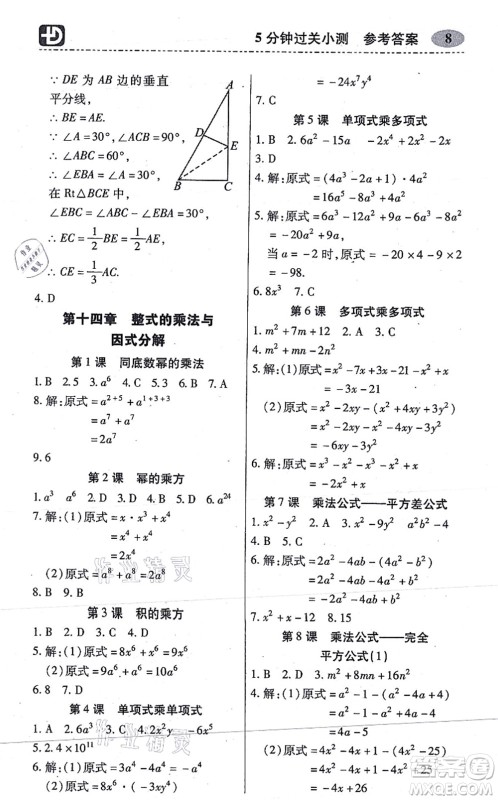 5分钟过关小测 参考答案 8
∵ DE 为 AB 的垂直
平分线,
∴ BE = AE.
∵ ∠A = 30°, ∠ACB = 90°
∴ ∠ABC = 60°
∴ ∠EBA = ∠A = 30°,
在 Rt△BCE 中,
∠EBC = ∠ABC - ∠EBA = 30°,
∴ EC = 1/2 BE = 1/2 AE,
∴ CE = 1/3 AC.
A
D
E
B
C
4. D
第十四章 整式的乘法与
因式分解
第1课 同底数幂的乘法
1. B 2. 5 3. a⁶ 4. B 5. C 6. D 7. C
8. 解: 原式 = a²⁺⁵ + a¹⁺³⁺³
= a⁷ + a⁷
= 2a⁷
9. 6
第2课 幂的乘方
1. a³ a⁶ 2. D 3. D 4. B 5. D 6. a²⁴
7. 解: (1) 原式 = x · x³ + x⁴
= x⁴ + x⁴
= 2x⁴
(2) 原式 = a⁸ + a⁸ = 2a⁸
8. B 9. B
第3课 积的乘方
1. B 2. D 3. A 4. C
5. 解: (1) 原式 = 8x⁶ + x⁶ = 9x⁶
(2) 原式 = 9a⁶ - a⁶ = 8a⁶
6. 8 7. D
第4课 单项式乘单项式
1. A 2. 6a³ 3. C 4. 2x²y -6x⁵
5. 2.4×10¹¹
6. 解: (1) 原式 = 3a⁴ - 4a⁴ = -a⁴
= -24x⁷y⁴
7. C
第5课 单项式乘多项式
1. B 2. 6a² - 15a -2x⁴ + 2x² - 2x
3. D
4. 解: 原式 = (4a³ - 2a²) · 4a²
= 16a⁵ - 8a⁴
5. 解: 原式 = 6a³ - 12a² + 9a - 6a³ -
8a² = -20a² + 9a,
当 a = -2 时, 原式 = -20×4 - 9×2
= -98.
6. 8x³ 7. C
第6课 多项式乘多项式
1. m² + 7m + 12 2. B 3. A 4. B
5. 解: (1) 原式 = x² - 3x - (x² + 7x - 7x
-3x - 21
(2) 原式 = x² - 2xy - (x² + 4xy + 3y²)
= x² - 2xy - x² - 4xy - 3y²
= -6xy - 3y²
6. 解: 原式 = -2x² + x
第7课 乘法公式——平方差公式
1. x² - y² 2. B 3. A 4. x² - 9y²
5. C
6. 解: (1) 原式 = 2a² - 4ab - (4b² - a²)
= 2a² - 4ab - 4b² + a²
= 3a² - 4ab - 4b²
7. 原式 = -x² + 12x 8. 15
第8课 乘法公式——完全
平方公式(1)
1. D 2. m² + 8mn + 16n² 3. D
4. B 5. A
6. 解: (1) 原式 = 4x² - 4x + 1
(2) 原式 = 4x² - 4x - (x² - 25)
= 4x² - 4x - x² + 25